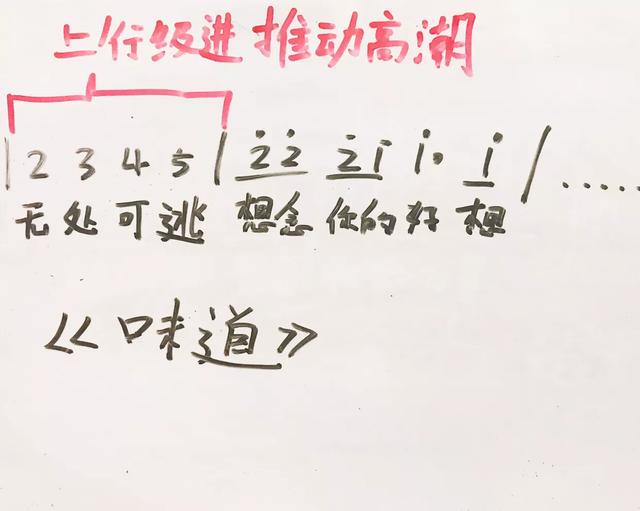 上行级进推动高潮
| 2 3 4 5 | 2̇2̇ 2̇1̇ 1̇· 1̇ | ......
无处可逃 想念你的好 想
《味道》